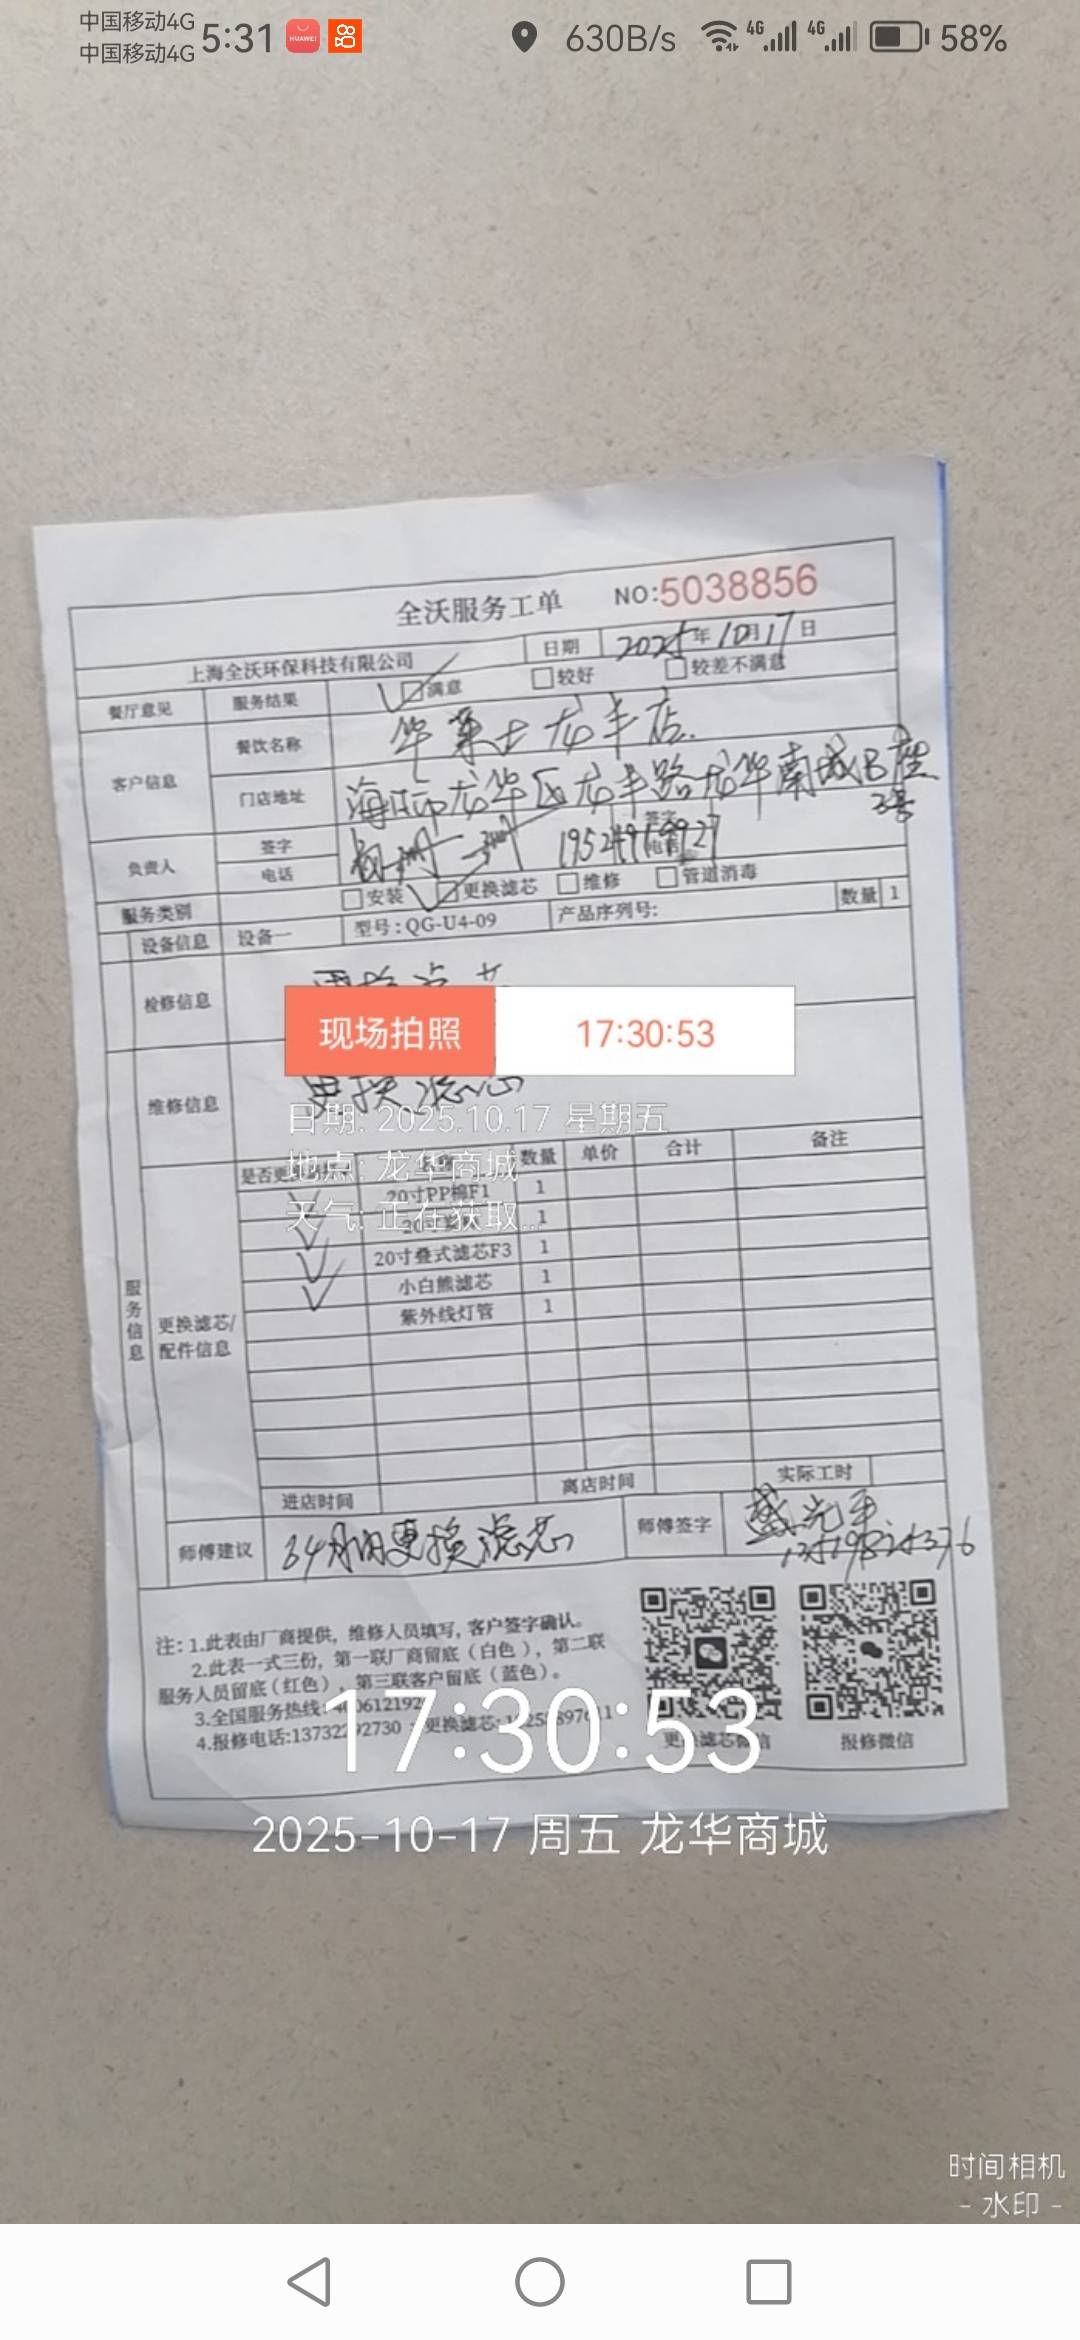 中国移动4G
中国移动4G
5:31
HUAWEI
630B/s
4G
4G
58%
全沃服务工单
NO:5038856
上海全沃环保科技有限公司
日期
2025年10月17日
餐厅意见
服务结果
满意
较好
较差不满意
客户信息
餐饮名称
华莱士龙丰店.
门店地址
海口市龙华区龙丰路龙华南城B座
2号
负责人
签字
签字
电话
电话
服务类别
安装
更换滤芯
维修
管道消毒
设备信息
设备一
型号:QG-U4-09
产品序列号:
数量
1
检修信息
更换滤芯
现场拍照
17:30:53
维修信息
更换滤芯
日期: 2025.10.17 星期五
地点: 龙华商城
天气: 正在获取...
是否更
数量
单价
合计
备注
20寸PP棉F1
1
1
20寸叠式滤芯F3
1
小白熊滤芯
1
紫外线灯管
1
服务信息
更换滤芯/
配件信息
进店时间
离店时间
实际工时
师傅建议
更换滤芯
师傅签字
注: 1.此表由厂商提供, 维修人员填写, 客户签字确认。
2.此表一式三份, 第一联厂商留底 (白色), 第二联
服务人员留底 (红色), 第三联客户留底 (蓝色)。
3.全国服务热线:
4.报修电话:
更换滤芯:
更换滤芯微信
报修微信
17:30:53
2025-10-17 周五 龙华商城
时间相机
- 水印 -